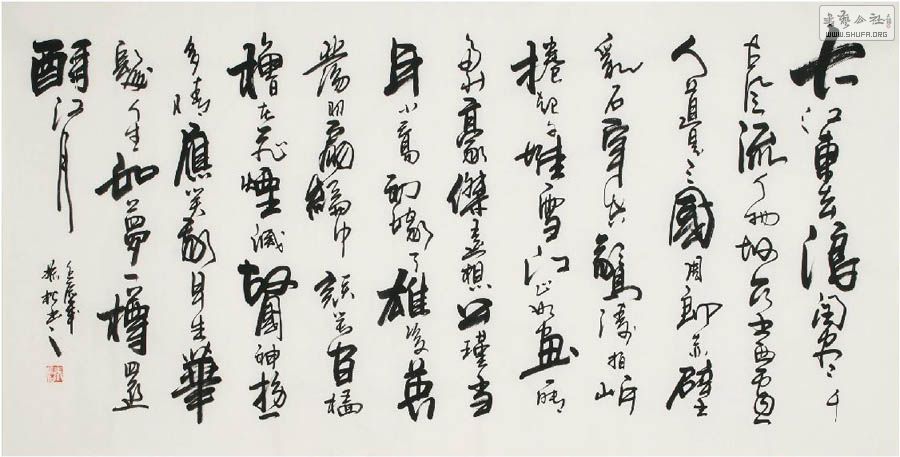 大江東去浪淘盡千
古風流人物故壘西邊
人道是三國周郎赤壁
亂石穿空驚濤拍岸
捲起千堆雪江山如畫一時
多少豪傑遙想公瑾當
年小喬初嫁了雄姿英
發羽扇綸巾談笑間檣
櫓灰飛煙滅故國神遊
多情應笑我早生華
髮人生如夢一樽還
酹江月
壬辰年
松書
书艺公社
WWW.SHUFA.ORG